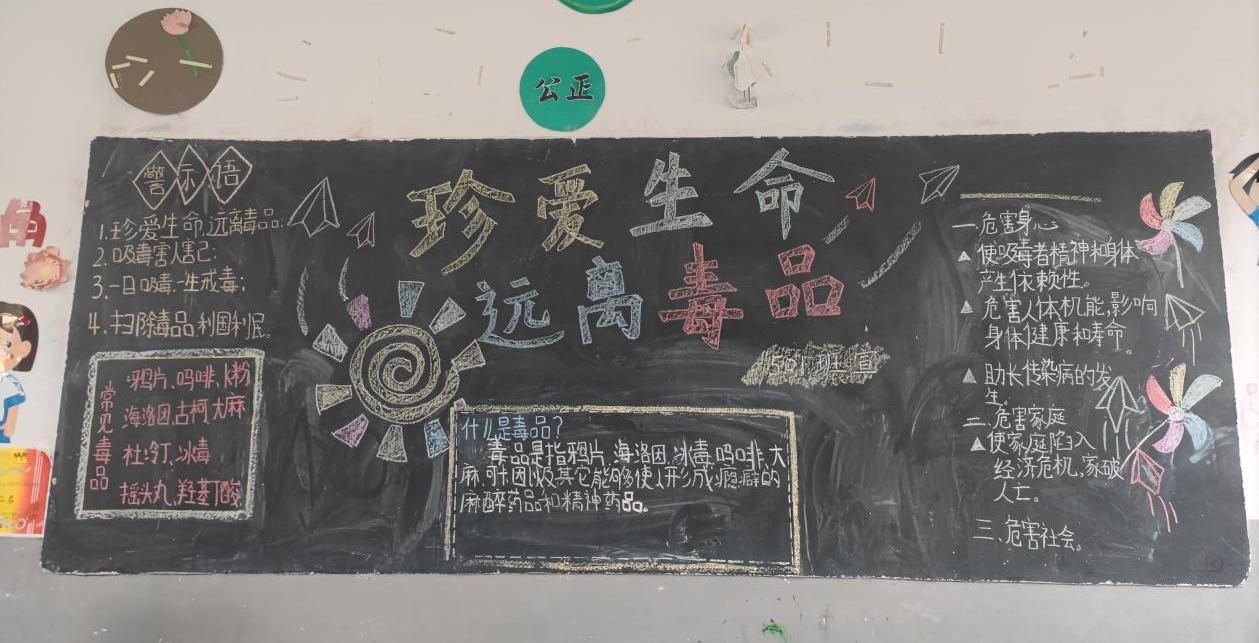 公正
警示语
1.珍爱生命,远离毒品;
2.吸毒害人害己;
3.一日吸毒,一生戒毒;
4.扫除毒品,利国利民。
常见毒品
鸦片、吗啡、K粉
海洛因、古柯、大麻
杜冷丁、冰毒
摇头丸、羟基丁酸
珍爱生命
远离毒品
501班 宣
什么是毒品?
毒品是指鸦片、海洛因、冰毒、吗啡、大
麻、可卡因以及其它能够使人形成瘾癖的
麻醉药品和精神药品。
一.危害身心
▲使吸毒者精神和身体
产生依赖性。
▲危害人体机能,影响
身体健康和寿命。
▲助长传染病的发
生。
二.危害家庭
▲使家庭陷入
经济危机,家破
人亡。
三.危害社会。